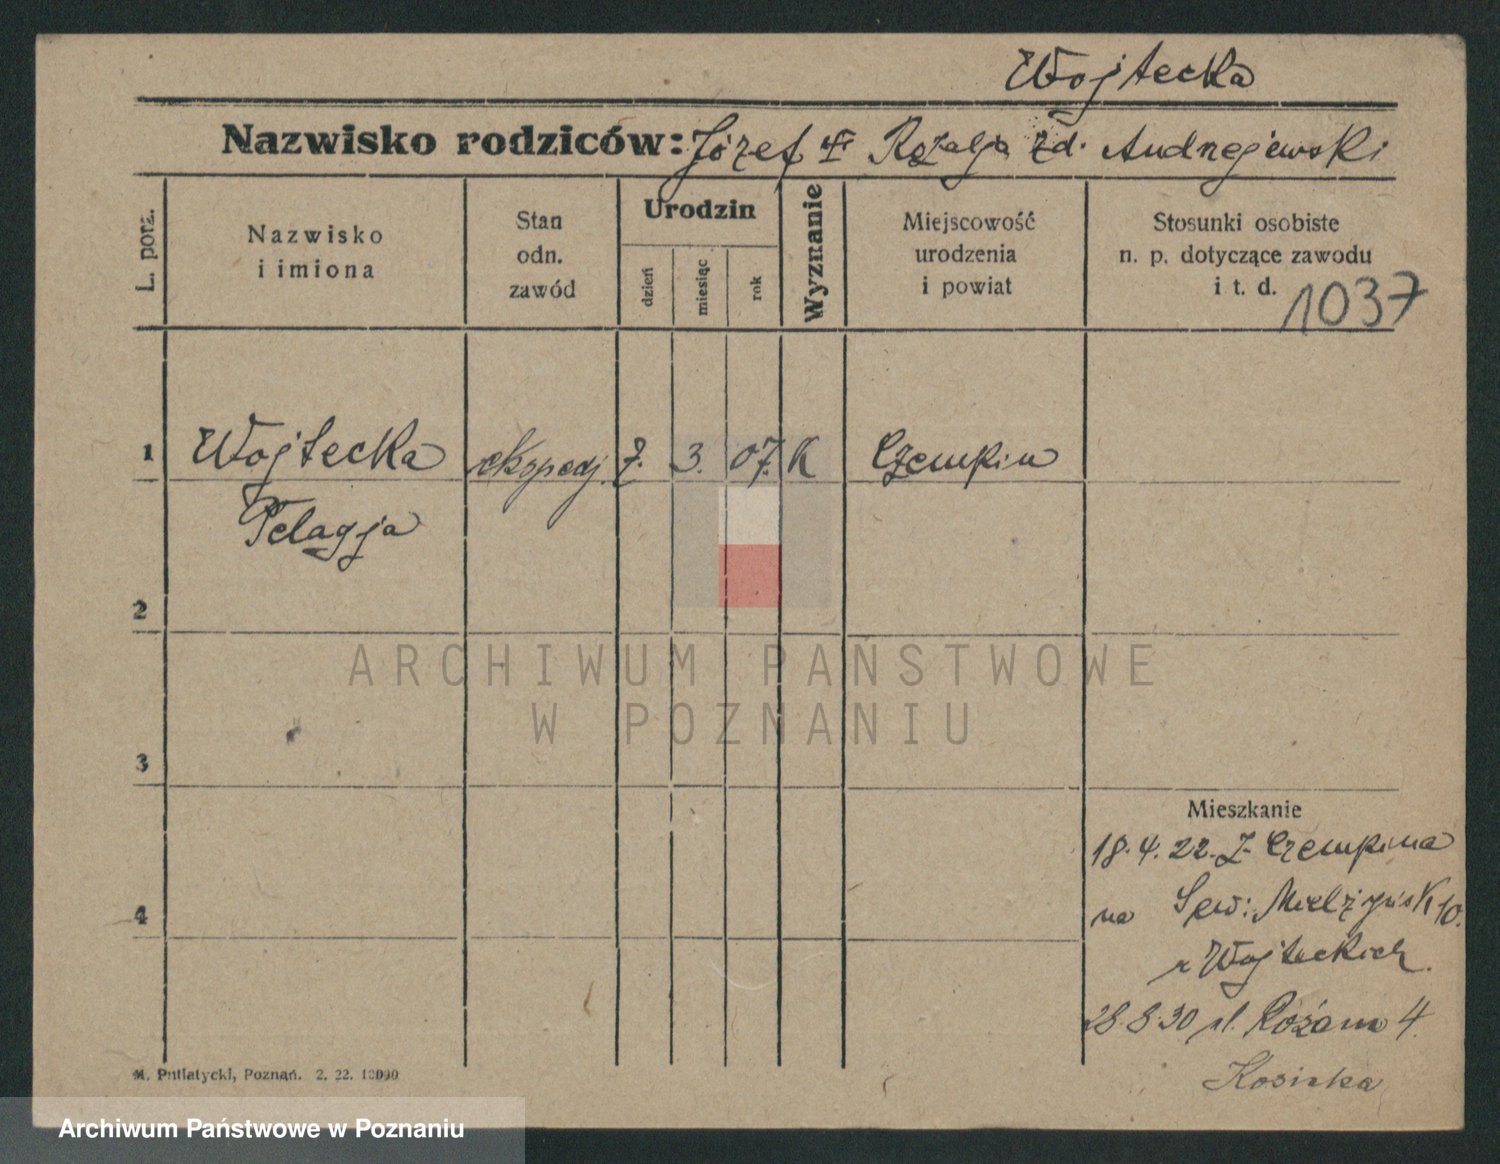 Wojtecka
Nazwisko rodziców: Józef Rozalja zd. Andrzejewski
L. porz.
Nazwisko
i imiona
Stan
odn.
zawód
Urodzin
dzień
miesiąc
rok
Wyznanie
Miejscowość
urodzenia
i powiat
Stosunki osobiste
n. p. dotyczące zawodu
i t. d. 1037
1 Wojtecka ekspedj. 7. 3. 07. K Czempin
Pelagja
2
ARCHIWUM PAŃSTWOWE
W POZNANIU
3
Mieszkanie
18.4.22. Z Czempinia
4
na Sew: Mielżyńsk 10.
Wojteckich.
28.8.30 Różana 4
M. Putiatycki, Poznań. 2. 22. 10000
Archiwum Państwowe w Poznaniu